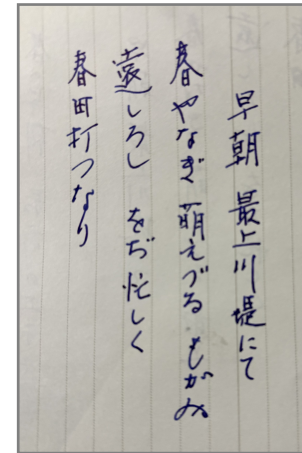 早朝 最上川堤にて
春やなぎ萌えづる もがみ
遠しろし をぢ忙しく
春田打つなり